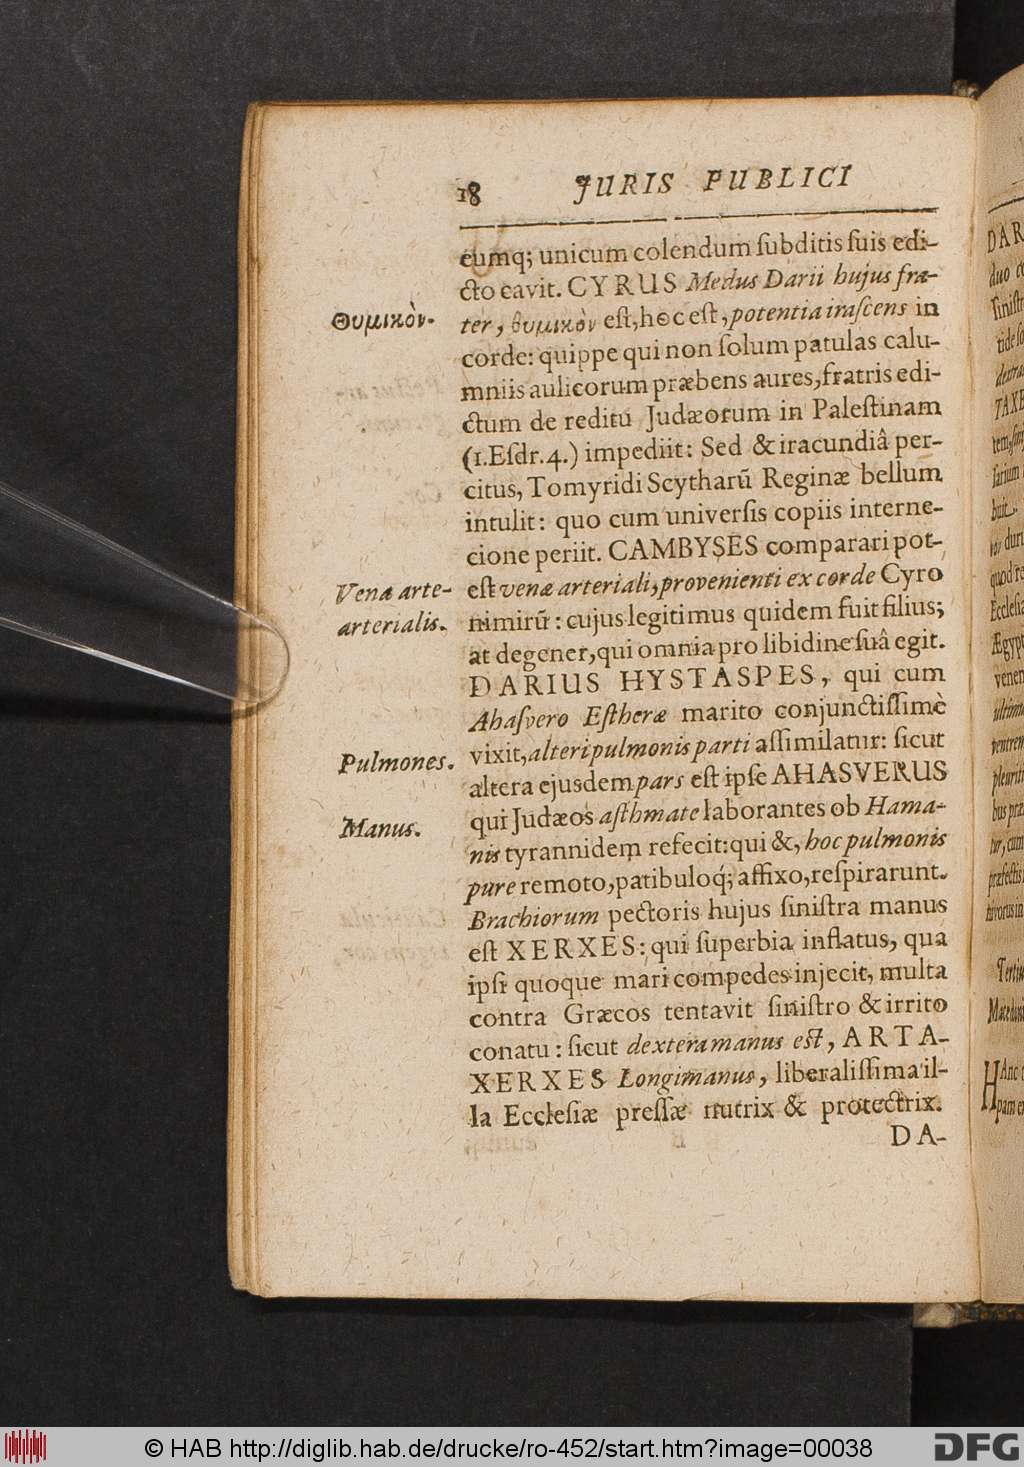 18 JURIS PUBLICI
eumq; unicum colendum ſubditis ſuis edi-
cto cavit. CYRUS Medus Darii hujus fra-
Θυμικὸν.
ter, θυμικὸν eſt, hoc eſt, potentia iraſcens in
corde: quippe qui non ſolum patulas calu-
mniis aulicorum præbens aures, fratris edi-
ctum de reditu Judæorum in Paleſtinam
(1. Eſdr. 4.) impediit: Sed & iracundiâ per-
citus, Tomyridi Scytharũ Reginæ bellum
intulit: quo cum univerſis copiis interne-
cione periit. CAMBYSES comparari pot-
Venæ arte-
arterialis.
eſt venæ arteriali, provenienti ex corde Cyro
nimirũ: cujus legitimus quidem fuit filius;
at degener, qui omnia pro libidine ſuâ egit.
DARIUS HYSTASPES, qui cum
Ahaſvero Eſtheræ marito conjunctiſſimè
Pulmones.
vixit, alteri pulmonis parti aſſimilatur: ſicut
altera ejusdem pars eſt ipſe AHASVERUS
Manus.
qui Judæos aſthmate laborantes ob Hama-
nis tyrannidem refecit: qui &, hoc pulmonis
pure remoto, patibuloq́; affixo, reſpirarunt.
Brachiorum pectoris hujus ſiniſtra manus
eſt XERXES: qui ſuperbia inflatus, qua
ipſi quoque mari compedes injecit, multa
contra Græcos tentavit ſiniſtro & irrito
conatu: ſicut dextera manus eſt, ARTA-
XERXES Longimanus, liberaliſſima il-
la Eccleſiæ preſſæ nutrix & protectrix.
DA-
© HAB http://diglib.hab.de/drucke/ro-452/start.htm?image=00038
DFG